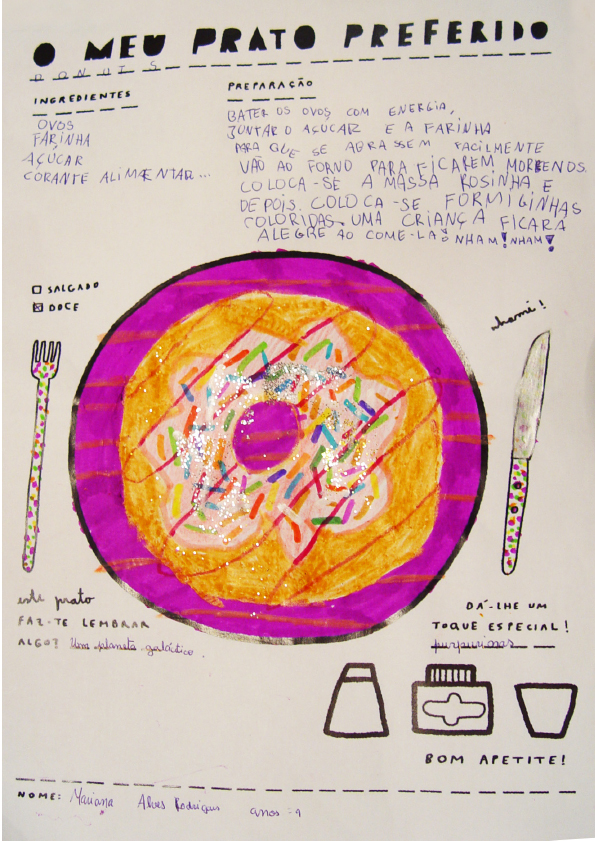 O MEU PRATO PREFERIDO
DONUTS
INGREDIENTES
OVOS
FARINHA
AÇÚCAR
CORANTE ALIMENTAR...
PREPARAÇÃO
BATER OS OVOS COM ENERGIA,
JUNTAR O AÇUCAR E A FARINHA
PARA QUE SE ABRASSEM FACILMENTE
VÃO AO FORNO PARA FICAREM MORENOS.
COLOCA-SE A MASSA ROSINHA, E
DEPOIS COLOCA-SE FORMIGINHAS
COLORIDAS. UMA CRIANÇA FICARA
ALEGRE AO COME-LA! NHAM! NHAM!
SALGADO
DOCE
nhame!
este prato
FAZ-TE LEMBRAR
ALGO? Um planeta galáctico.
DÁ-LHE UM
TOQUE ESPECIAL!
purpurinas
BOM APETITE!
NOME: Mariana Alves Rodrigues anos-9